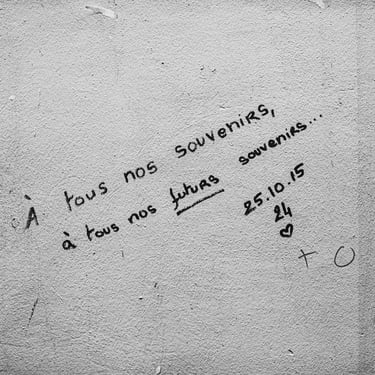 À tous nos souvenirs,
à tous nos futurs souvenirs...
25.10.15
24
♡
+ O